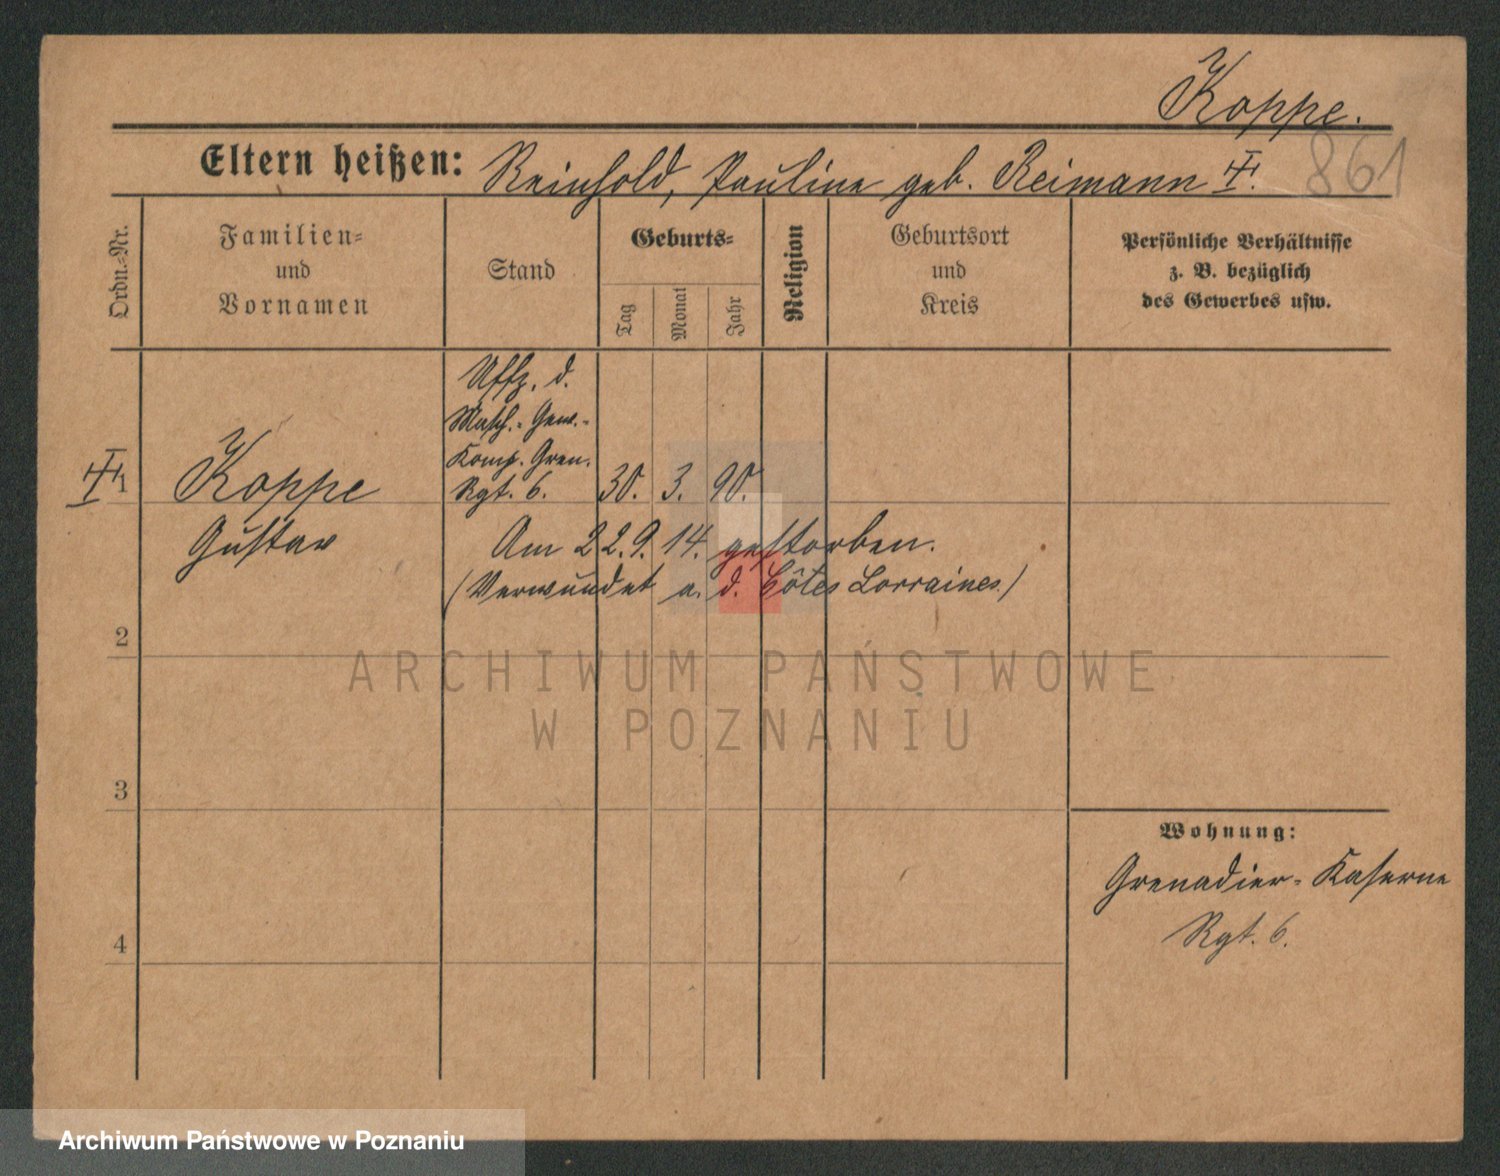 Koppe.
Eltern heißen: Reinhold, Pauline geb. Reimann
861
Ordn.-Nr.
Familien-
und
Vornamen
Stand
Geburts-
Tag
Monat
Jahr
Religion
Geburtsort
und
Kreis
Persönliche Verhältnisse
z. B. bezüglich
des Gewerbes usw.
Uffz. d.
Masch.-Gew.-
Komp. Gren.
1 Koppe Rgt. 6. 30. 3. 90.
Gustav Am 22.9.14. gestorben.
(Verwundet a. d. Côtes Lorraines.)
2
ARCHIWUM PAŃSTWOWE
W POZNANIU
3
Wohnung:
Grenadier-Kaserne
Rgt. 6.
4
Archiwum Państwowe w Poznaniu